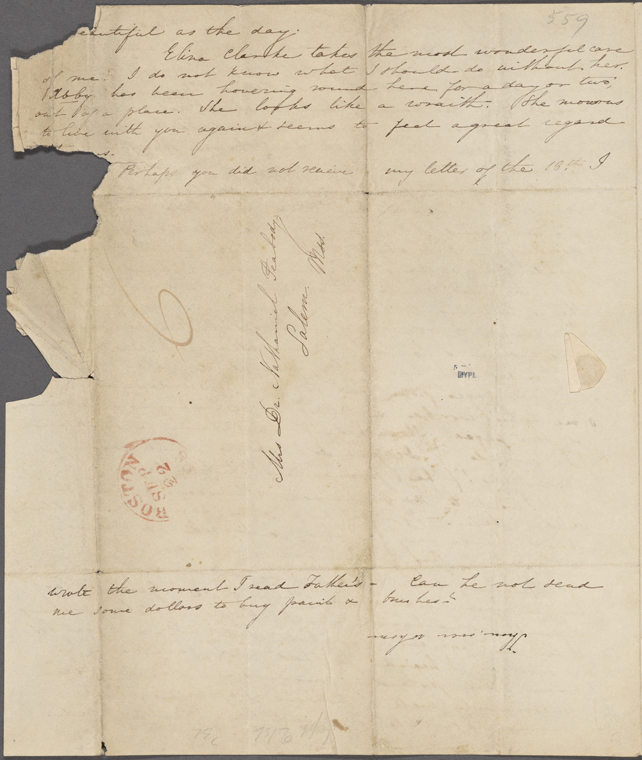 559
eautiful as the day.
Eliza Clarke takes the most wonderful care
of me. I do not know what I should do without her.
has been hovering round here for a day or two,
out of a place. She looks like a wraith. She mourns
to live with you again & seems to feel a great regard
Perhaps you did not receive my letter of the 18th. I
6
Mrs Dr. Nathaniel Peabody,
Salem Mass.
BOSTON
wrote the moment I read Father's — Can he not send
me some dollars to buy paints & brushes?